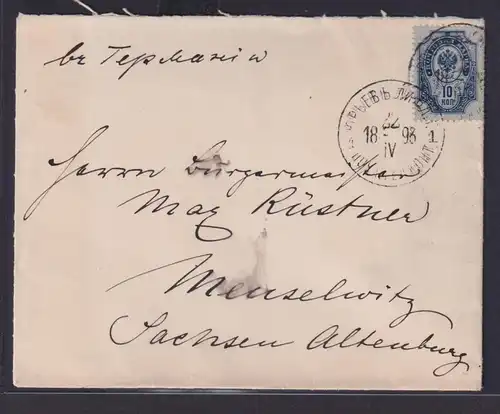 въ Германію
10
КОП
ЮРЬЕВЪ ЛИФЛ.
22
18 93
IV
1
Herrn Bürgermeister
Max Rüstner
Menselwitz
Sachsen Altenburg.